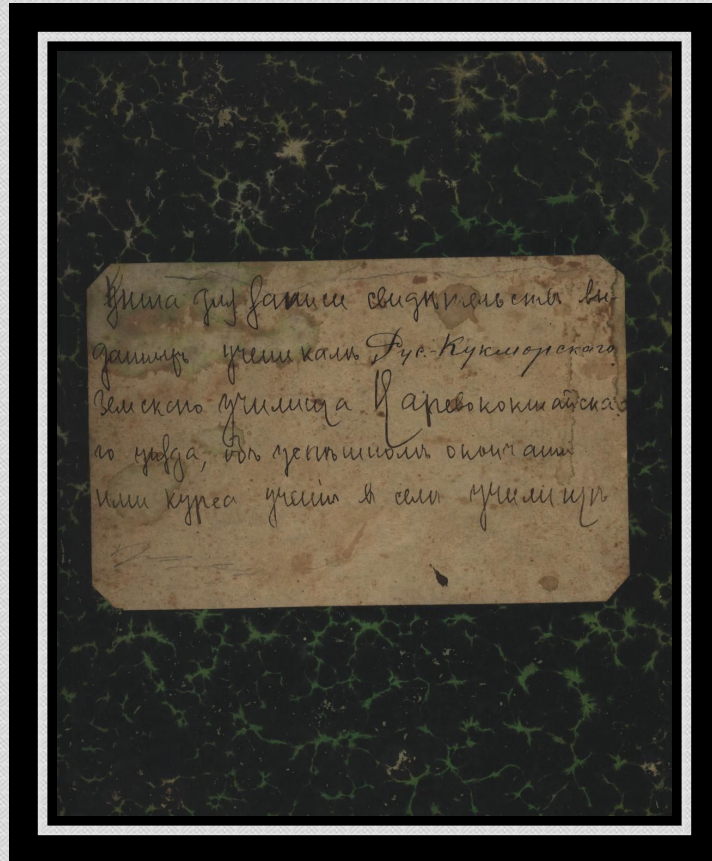 Книга для записи свидѣтельствъ вы-
даннымъ ученикамъ Рус.-Кукморскаго
Земскаго училища Царевококшайска-
го уѣзда, объ успѣшномъ окончаніи
ими курса ученія въ семъ училищѣ